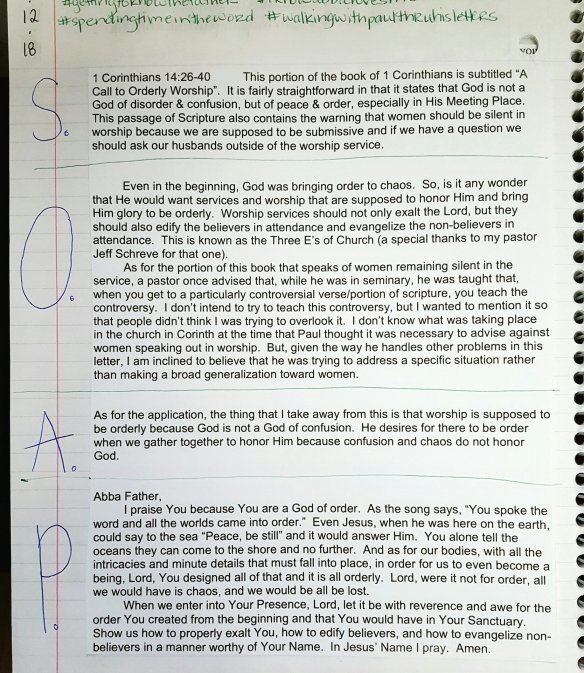 12
#spendingtimeintheword #walkingwithpaulthruhisletters
18
S.
1 Corinthians 14:26-40 This portion of the book of 1 Corinthians is subtitled “A
Call to Orderly Worship”. It is fairly straightforward in that it states that God is not a
God of disorder & confusion, but of peace & order, especially in His Meeting Place.
This passage of Scripture also contains the warning that women should be silent in
worship because we are supposed to be submissive and if we have a question we
should ask our husbands outside of the worship service.
O.
Even in the beginning, God was bringing order to chaos. So, is it any wonder
that He would want services and worship that are supposed to honor Him and bring
Him glory to be orderly. Worship services should not only exalt the Lord, but they
should also edify the believers in attendance and evangelize the non-believers in
attendance. This is known as the Three E’s of Church (a special thanks to my pastor
Jeff Schreve for that one).
As for the portion of this book that speaks of women remaining silent in the
service, a pastor once advised that, while he was in seminary, he was taught that,
when you get to a particularly controversial verse/portion of scripture, you teach the
controversy. I don’t intend to try to teach this controversy, but I wanted to mention it so
that people didn’t think I was trying to overlook it. I don’t know what was taking place
in the church in Corinth at the time that Paul thought it was necessary to advise against
women speaking out in worship. But, given the way he handles other problems in this
letter, I am inclined to believe that he was trying to address a specific situation rather
than making a broad generalization toward women.
A.
As for the application, the thing that I take away from this is that worship is supposed to
be orderly because God is not a God of confusion. He desires for there to be order
when we gather together to honor Him because confusion and chaos do not honor
God.
P.
Abba Father,
I praise You because You are a God of order. As the song says, “You spoke the
word and all the worlds came into order.” Even Jesus, when he was here on the earth,
could say to the sea “Peace, be still” and it would answer Him. You alone tell the
oceans they can come to the shore and no further. And as for our bodies, with all the
intricacies and minute details that must fall into place, in order for us to even become a
being, Lord, You designed all of that and it is all orderly. Lord, were it not for order, all
we would have is chaos, and we would be all be lost.
When we enter into Your Presence, Lord, let it be with reverence and awe for the
order You created from the beginning and that You would have in Your Sanctuary.
Show us how to properly exalt You, how to edify believers, and how to evangelize non-
believers in a manner worthy of Your Name. In Jesus’ Name I pray. Amen.